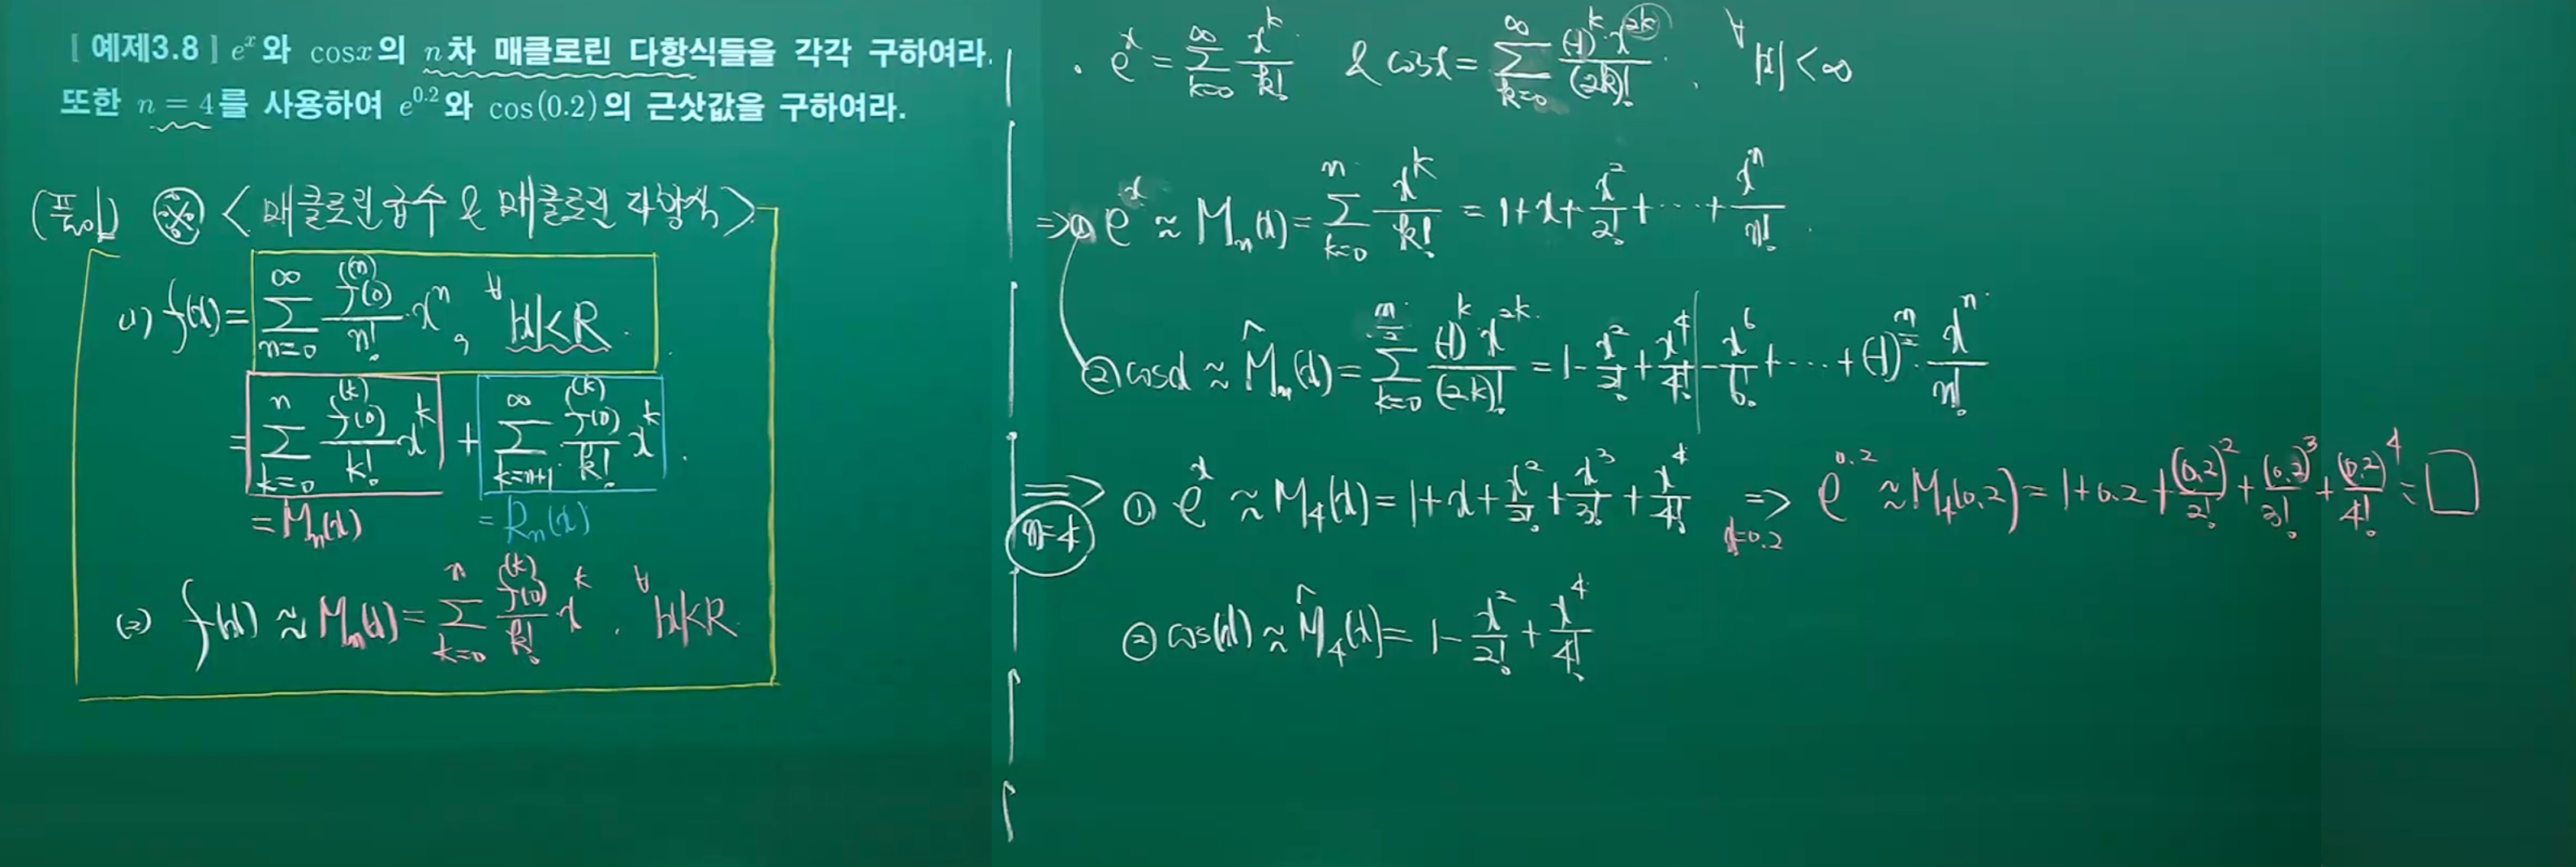 [예제3.8] e^x와 cosx의 n차 매클로린 다항식들을 각각 구하여라.
또한 n = 4를 사용하여 e^0.2와 cos(0.2)의 근삿값을 구하여라.
(풀이) ※ < 매클로린급수 & 매클로린 다항식 >
(1) f(x) = ∑_{n=0}^{∞} f^(n)(0)/n! · x^n, ∀|x|<R.
= ∑_{k=0}^{n} f^(k)(0)/k! x^k + ∑_{k=n+1}^{∞} f^(k)(0)/k! x^k.
= M_n(x) = R_n(x)
(2) f(x) ≈ M_n(x) = ∑_{k=0}^{n} f^(k)(0)/k! x^k. ∀|x|<R
· e^x = ∑_{k=0}^{∞} x^k/k! & cosx = ∑_{k=0}^{∞} (-1)^k·x^{2k}/(2k)!. ∀|x|<∞
⇒ ① e^x ≈ M_n(x) = ∑_{k=0}^{n} x^k/k! = 1+x+x^2/2!+···+x^n/n!.
② cosx ≈ M̂_n(x) = ∑_{k=0}^{n/2} (-1)^k·x^{2k}/(2k)! = 1-x^2/2!+x^4/4!-x^6/6!+···+(-1)^{n/2}·x^n/n!
⇒ n=4 ① e^x ≈ M_4(x) = 1+x+x^2/2!+x^3/3!+x^4/4! ⇒ x=0.2 e^0.2 ≈ M_4(0.2) = 1+0.2+(0.2)^2/2!+(0.2)^3/3!+(0.2)^4/4! = □
② cos(x) ≈ M̂_4(x) = 1-x^2/2!+x^4/4!